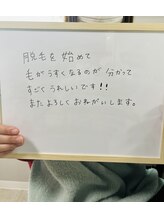 脱毛を始めて
毛がうすくなるのが分かって
すごくうれしいです!!
またよろしくおねがいします。